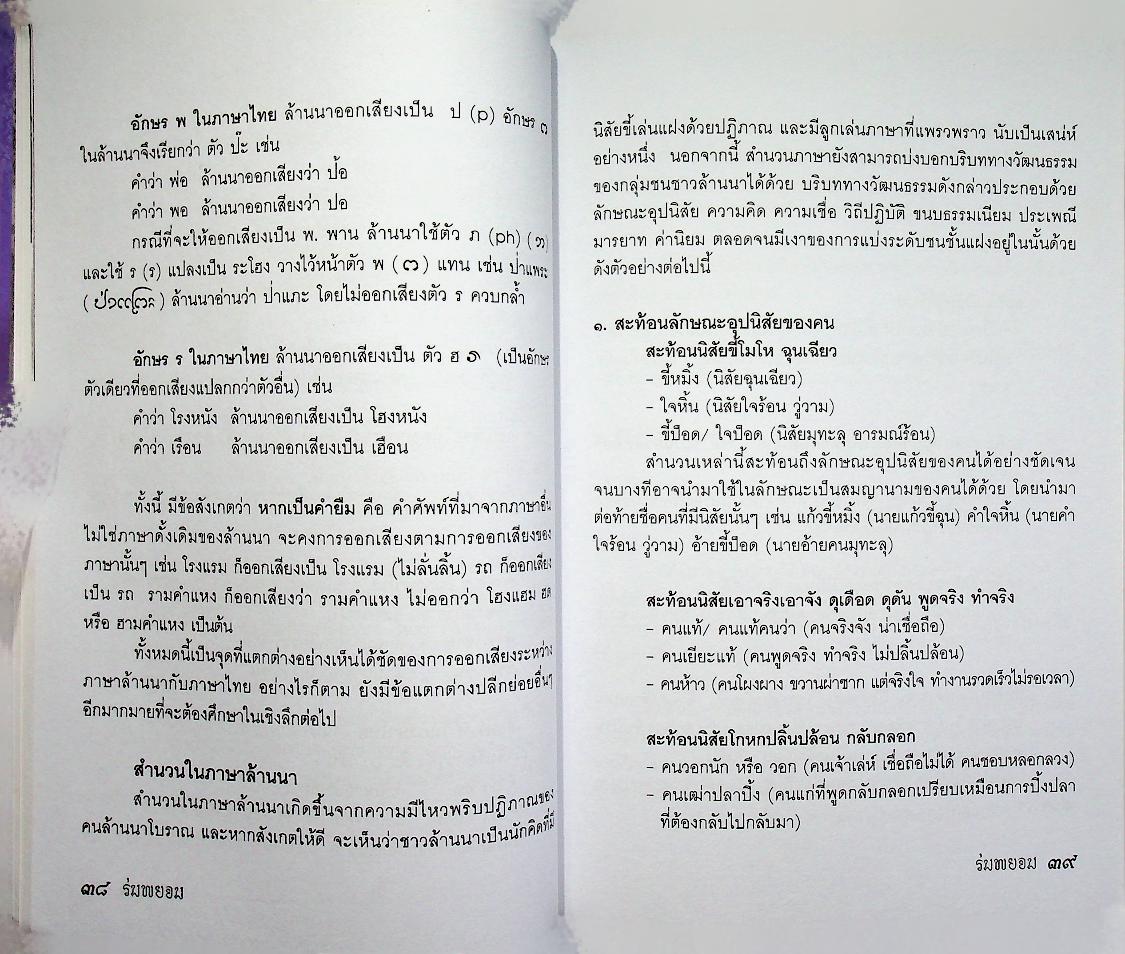 อักษร พ ในภาษาไทย ล้านนาออกเสียงเป็น ป (p) อักษร
ในล้านนาจึงเรียกว่า ตัว ป๊ะ เช่น
คำว่า พ่อ ล้านนาออกเสียงว่า ป้อ
คำว่า พอ ล้านนาออกเสียงว่า ปอ
กรณีที่จะให้ออกเสียงเป็น พ. พาน ล้านนาใช้ตัว ภ (ph)
และใช้ ร (ร) แปลงเป็น ระโฮง วางไว้หน้าตัว พ แทน เช่น ป่าแพระ
ล้านนาอ่านว่า ป่าแภะ โดยไม่ออกเสียงตัว ร ควบกล้ำ
อักษร ร ในภาษาไทย ล้านนาออกเสียงเป็น ตัว ฮ (เป็นอักษร
ตัวเดียวที่ออกเสียงแปลกกว่าตัวอื่น) เช่น
คำว่า โรงหนัง ล้านนาออกเสียงเป็น โฮงหนัง
คำว่า เรือน ล้านนาออกเสียงเป็น เฮือน
ทั้งนี้ มีข้อสังเกตว่า หากเป็นคำยืม คือ คำศัพท์ที่มาจากภาษาอื่น
ไม่ใช่ภาษาดั้งเดิมของล้านนา จะคงการออกเสียงตามการออกเสียงของ
ภาษานั้นๆ เช่น โรงแรม ก็ออกเสียงเป็น โรงแรม (ไม่ลั่นลิ้น) รถ ก็ออกเสียง
เป็น รถ รามคำแหง ก็ออกเสียงว่า รามคำแหง ไม่ออกว่า โฮงแฮม ฮด
หรือ ฮามคำแหง เป็นต้น
ทั้งหมดนี้เป็นจุดที่แตกต่างอย่างเห็นได้ชัดของการออกเสียงระหว่าง
ภาษาล้านนากับภาษาไทย อย่างไรก็ตาม ยังมีข้อแตกต่างปลีกย่อยอื่นๆ
อีกมากมายที่จะต้องศึกษาในเชิงลึกต่อไป
สำนวนในภาษาล้านนา
สำนวนในภาษาล้านนาเกิดขึ้นจากความมีไหวพริบปฏิภาณของ
คนล้านนาโบราณ และหากสังเกตให้ดี จะเห็นว่าชาวล้านนาเป็นนักคิดที่มี
๓๘ ร่มพยอม
นิสัยขี้เล่นแฝงด้วยปฏิภาณ และมีลูกเล่นภาษาที่แพรวพราว นับเป็นเสน่ห์
อย่างหนึ่ง นอกจากนี้ สำนวนภาษายังสามารถบ่งบอกบริบททางวัฒนธรรม
ของกลุ่มชนชาวล้านนาได้ด้วย บริบททางวัฒนธรรมดังกล่าวประกอบด้วย
ลักษณะอุปนิสัย ความคิด ความเชื่อ วิถีปฏิบัติ ขนบธรรมเนียม ประเพณี
มารยาท ค่านิยม ตลอดจนมีเงาของการแบ่งระดับชนชั้นแฝงอยู่ในนั้นด้วย
ดังตัวอย่างต่อไปนี้
๑. สะท้อนลักษณะอุปนิสัยของคน
สะท้อนนิสัยขี้โมโห ฉุนเฉียว
- ขี้หมิ้ง (นิสัยฉุนเฉียว)
- ใจหิ้น (นิสัยใจร้อน วู่วาม)
- ขี้ป็อด/ ใจป็อด (นิสัยมุทะลุ อารมณ์ร้อน)
สำนวนเหล่านี้สะท้อนถึงลักษณะอุปนิสัยของคนได้อย่างชัดเจน
จนบางทีอาจนำมาใช้ในลักษณะเป็นสมญานามของคนได้ด้วย โดยนำมา
ต่อท้ายชื่อคนที่มีนิสัยนั้นๆ เช่น แก้วขี้หมิ้ง (นายแก้วขี้ฉุน) คำใจหิ้น (นายคำ
ใจร้อน วู่วาม) อ้ายขี้ป็อด (นายอ้ายคนมุทะลุ)
สะท้อนนิสัยเอาจริงเอาจัง ดุเดือด ดุดัน พูดจริง ทำจริง
- คนแท้/ คนแท้คนว่า (คนจริงจัง น่าเชื่อถือ)
- คนเยียะแท้ (คนพูดจริง ทำจริง ไม่ปลิ้นปล้อน)
- คนห้าว (คนโผงผาง ขวานผ่าซาก แต่จริงใจ ทำงานรวดเร็วไม่รอเวลา)
สะท้อนนิสัยโกหกปลิ้นปล้อน กลับกลอก
- คนวอกนัก หรือ วอก (คนเจ้าเล่ห์ เชื่อถือไม่ได้ คนชอบหลอกลวง)
- คนเฒ่าปลาปิ้ง (คนแก่ที่พูดกลับกลอกเปรียบเหมือนการปิ้งปลา
ที่ต้องกลับไปกลับมา)
ร่มพยอม ๓๙